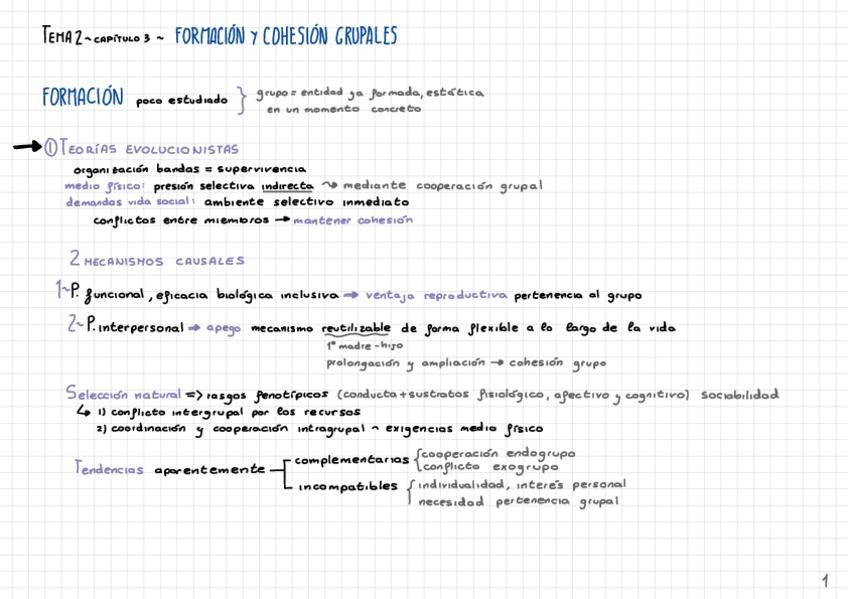 TEMA 2 ~ CAPÍTULO 3 ~ FORMACIÓN Y COHESIÓN GRUPALES
FORMACIÓN poco estudiado } grupo = entidad ya formada, estática
en un momento concreto
→ ① TEORÍAS EVOLUCIONISTAS
organización bandas = supervivencia
medio físico: presión selectiva indirecta ↝ mediante cooperación grupal
demandas vida social: ambiente selectivo inmediato
conflictos entre miembros → mantener cohesión
2 MECANISMOS CAUSALES
1~ P. funcional, eficacia biológica inclusiva → ventaja reproductiva pertenencia al grupo
2~ P. interpersonal → apego mecanismo reutilizable de forma flexible a lo largo de la vida
1º madre-hijo
prolongación y ampliación → cohesión grupo
Selección natural => rasgos fenotípicos (conducta + sustratos fisiológico, afectivo y cognitivo) sociabilidad
↳ 1) conflicto intergrupal por los recursos
2) coordinación y cooperación intragrupal ~ exigencias medio físico
Tendencias aparentemente complementarias { cooperación endogrupo
conflicto exogrupo
incompatibles { individualidad, interés personal
necesidad pertenencia grupal
1